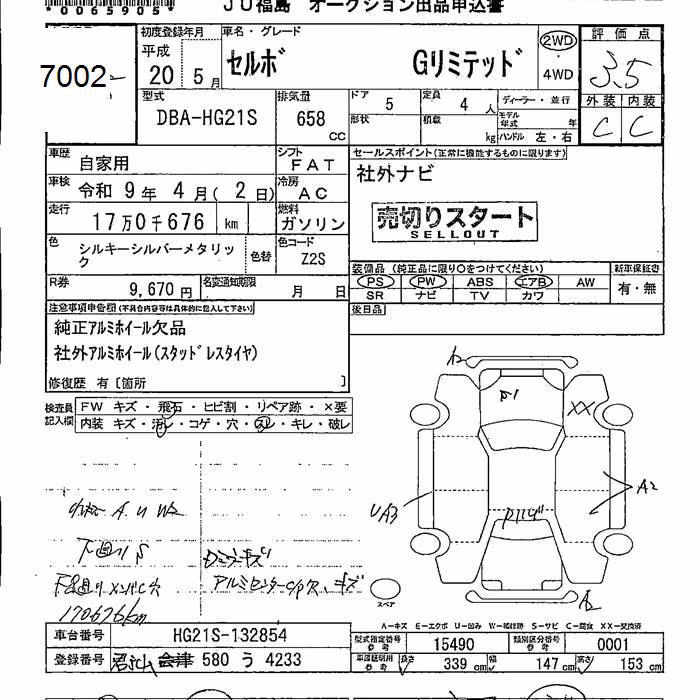 *0065905*
JU福島 オークション出品申込書
7002
初度登録年月 車名・グレード 評価点
平成 20 5月 セルボ Gリミテッド 2WD 4WD 3.5
型式 排気量 ドア 5 定員 4 人 ディーラー・並行 外装 内装
DBA-HG21S 658 CC 形状 積載 kg モデル年式 年 ハンドル 左・右 C C
車歴 自家用 シフト FAT セールスポイント(正常に機能するものに限ります)
車検 令和 9年 4月(2日) 冷房 AC 社外ナビ
走行 17万0千676 km 燃料 ガソリン 売切りスタート
SELLOUT
色 シルキーシルバーメタリック 色替 色コード Z2S
装備品(純正品に限り○をつけてください) 新車保証書
R券 9,670円 名変通知期限 月 日 PS PW ABS エアB AW 有・無
SR ナビ TV カワ
注意事項申告欄(不具合内容等は具体的に記入して下さい) 後日品
純正アルミホイール欠品
社外アルミホイール(スタッドレスタイヤ)
修復歴 有〔箇所 〕
検査員記入欄 FW キズ・飛石・ヒビ割・リペア跡・×要
内装 キズ・汚レ・コゲ・穴・スレ・キレ・破レ
A2
P1
XX
UA3
A2
A U W2
下廻りS
アルミセンターC/P欠 キズ
170676km
スペア
A2
A-キズ E-エクボ U-凹み W-補修跡 S-サビ C-腐食 XX-交換済
車台番号 HG21S-132854 型式指定番号 参考 15490 類別区分番号 参考 0001
登録番号 会津 580 う 4233 車庫証明用 参考 長さ 339 cm 幅 147 cm 高さ 153 cm